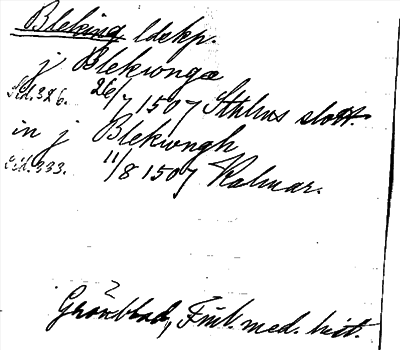 Bleking ldskp.
j Blekwngæ
Sid. 326. 26/7 1507 Sthlms slott.
in j Blekwngh
Sid. 333. 11/8 1507 Kalmar.
Grönblad, Finl. med. hist.